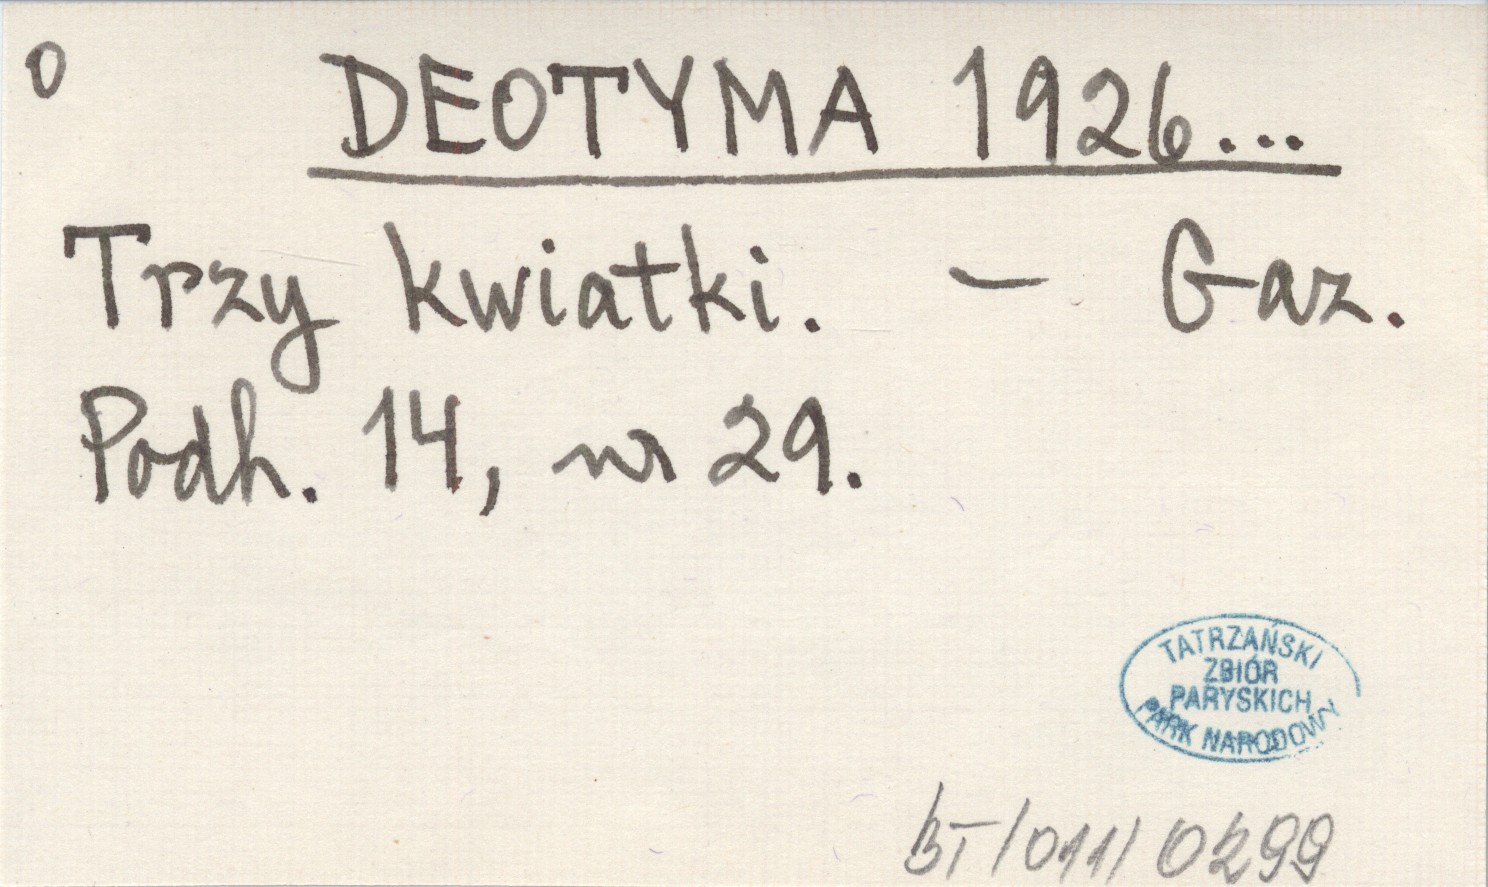 0
DEOTYMA 1926...
Trzy kwiatki. – Gaz.
Podh. 14, nr 29.
TATRZAŃSKI
ZBIÓR
PARYSKICH
PARK NARODOWY
BT/011/0299